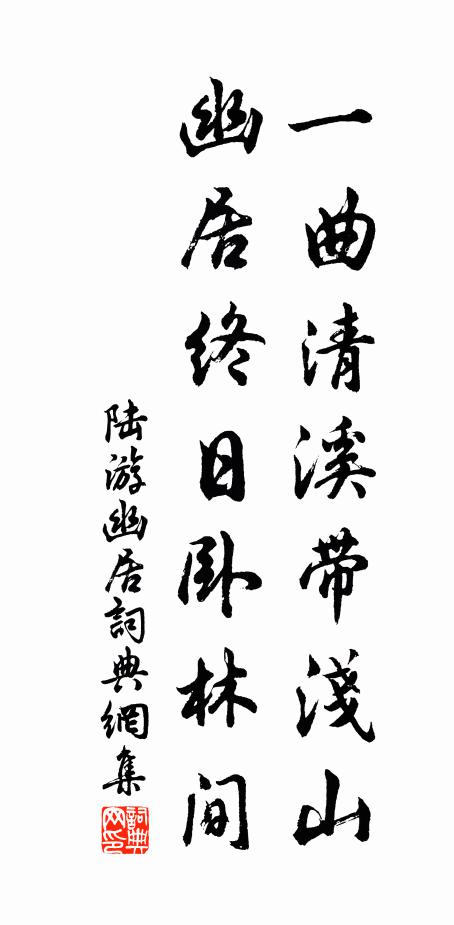 一曲清溪带淺山
幽居终日卧林间
陆游幽居詞典網集
詞典网印